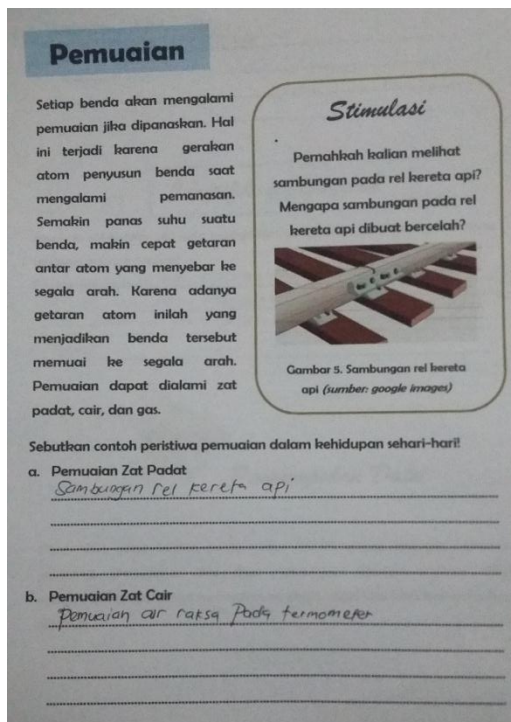 Pemuaian
Setiap benda akan mengalami
pemuaian jika dipanaskan. Hal
ini terjadi karena gerakan
atom penyusun benda saat
mengalami pemanasan.
Semakin panas suhu suatu
benda, makin cepat getaran
antar atom yang menyebar ke
segala arah. Karena adanya
getaran atom inilah yang
menjadikan benda tersebut
memuai ke segala arah.
Pemuaian dapat dialami zat
padat, cair, dan gas.
Stimulasi
Pernahkah kalian melihat
sambungan pada rel kereta api?
Mengapa sambungan pada rel
kereta api dibuat bercelah?
Gambar 5. Sambungan rel kereta
api (sumber: google images)
Sebutkan contoh peristiwa pemuaian dalam kehidupan sehari-hari!
a. Pemuaian Zat Padat
Sambungan rel kereta api
b. Pemuaian Zat Cair
Pemuaian air raksa Pada termometer